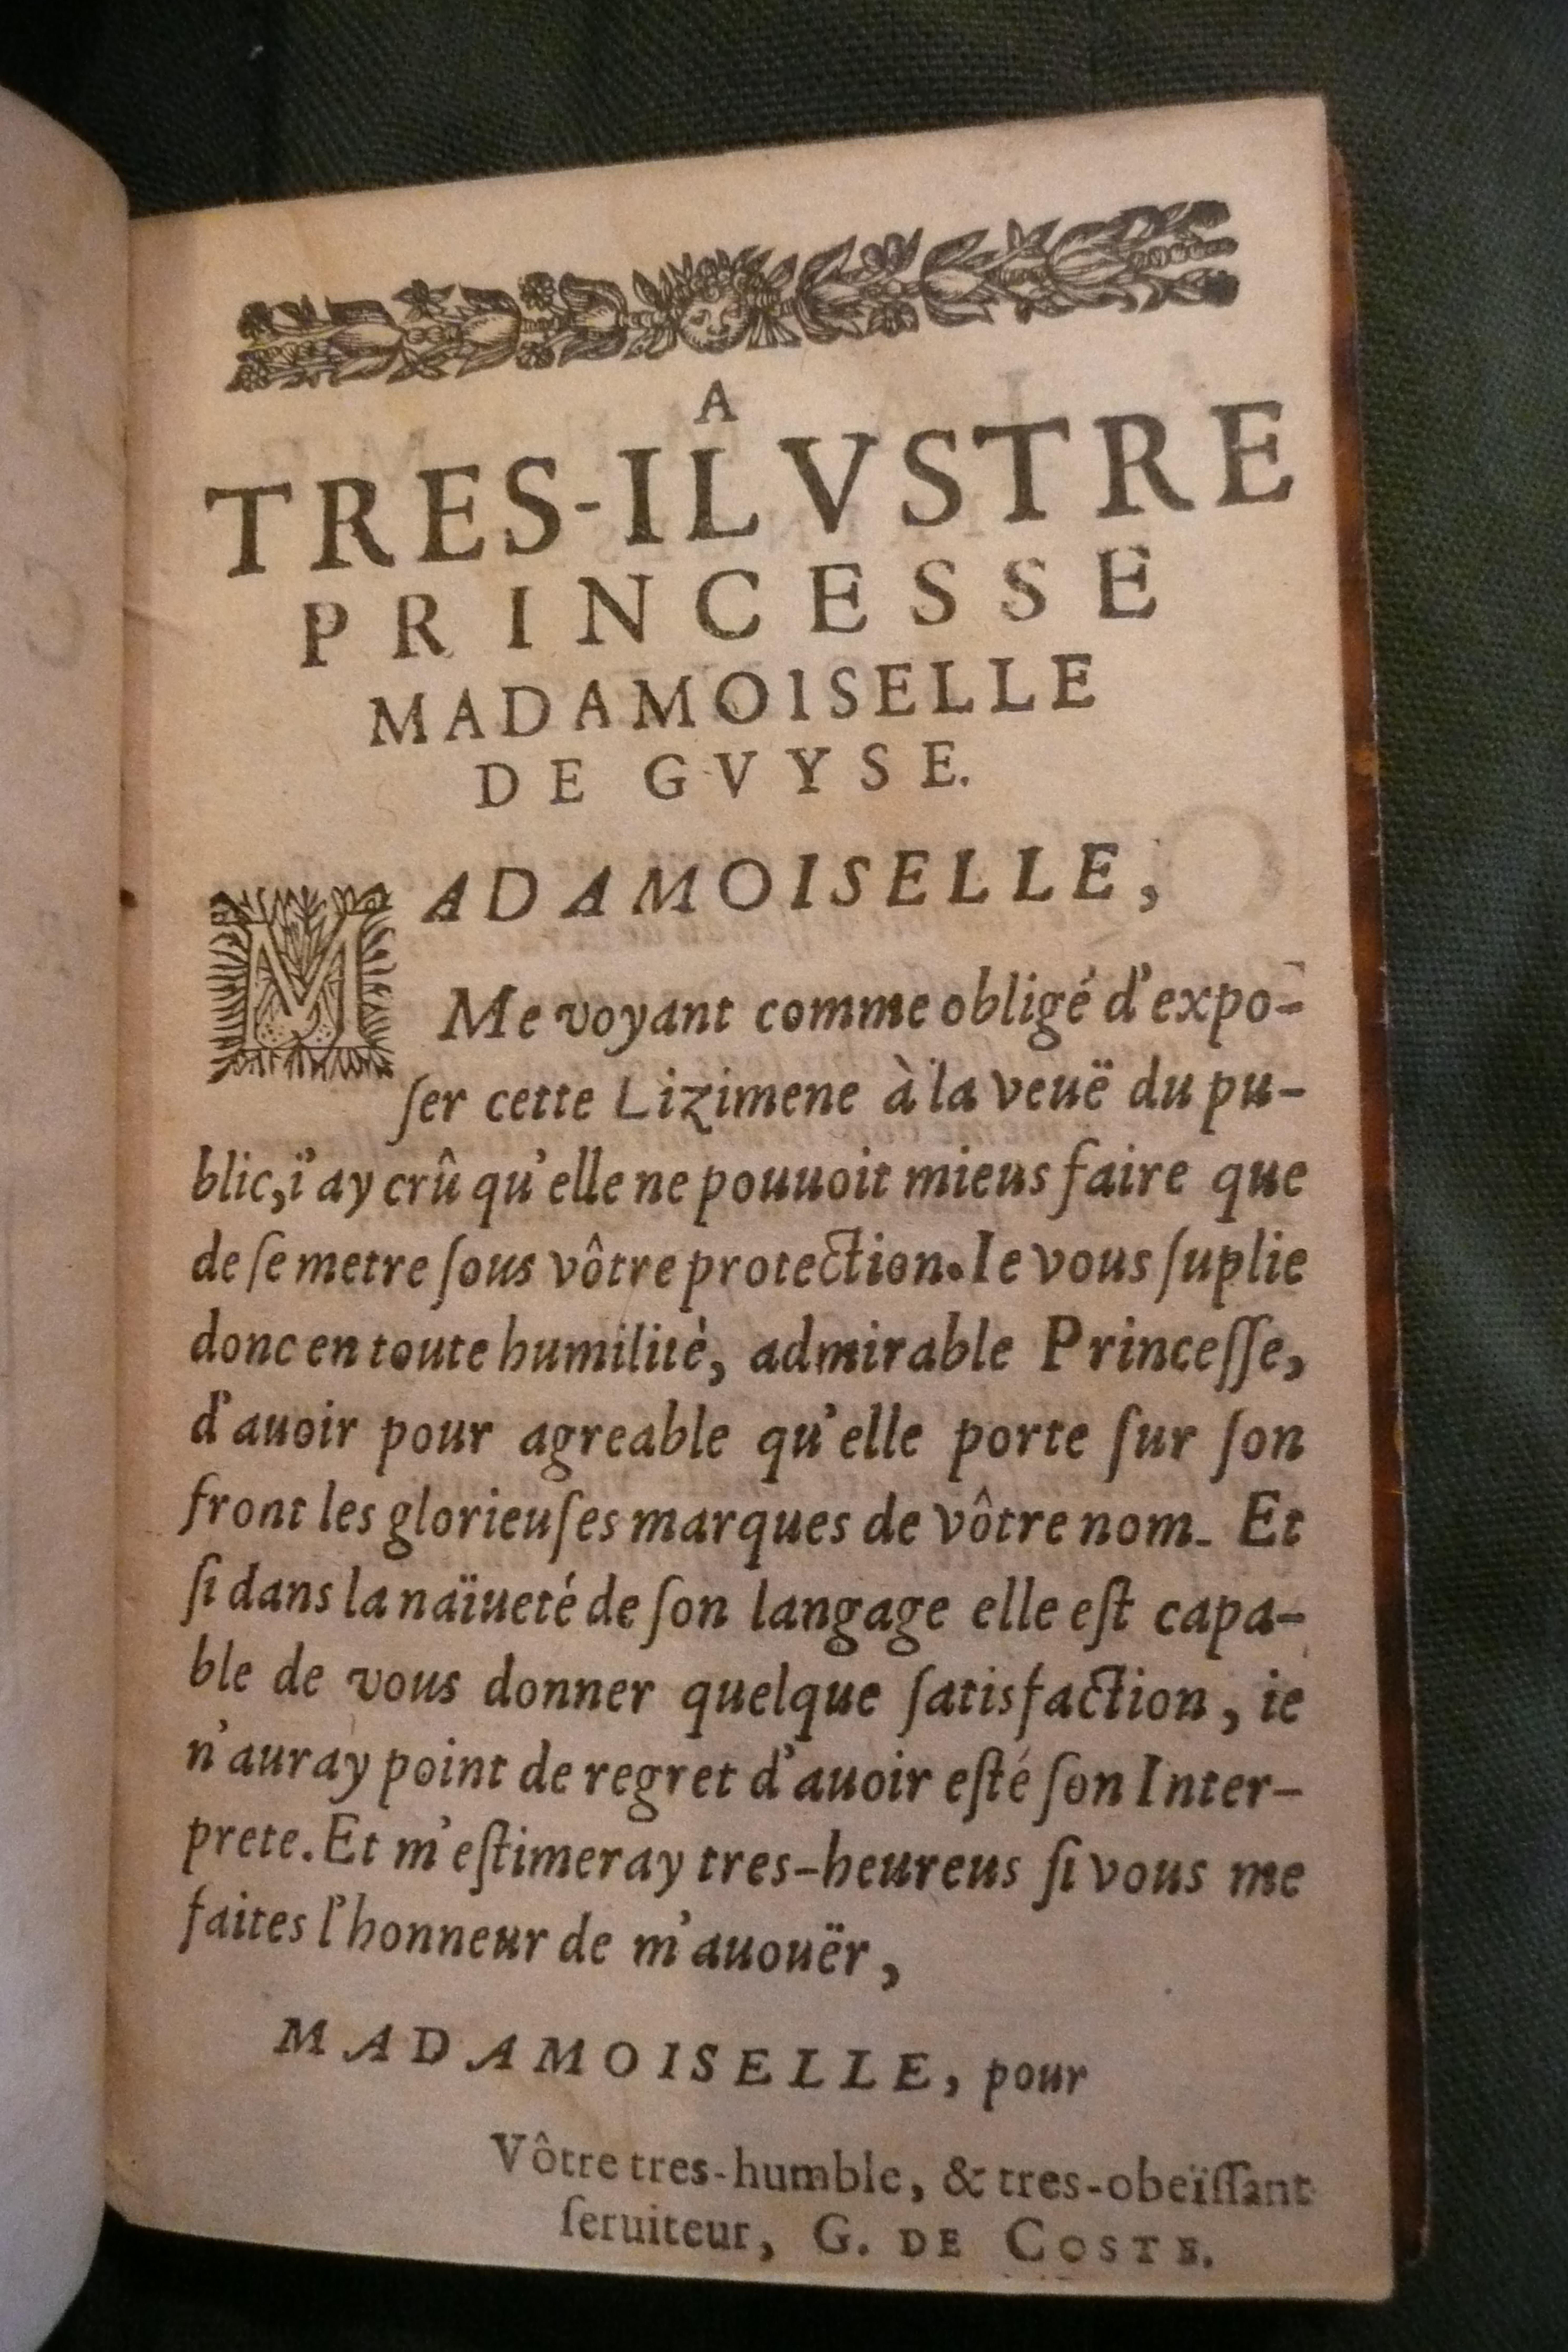 A
TRES-ILVSTRE
PRINCESSE
MADAMOISELLE
DE GVYSE.
MADAMOISELLE,
Me voyant comme obligé d'expo-
ſer cette Lizimene à la veuë du pu-
blic, i'ay crû qu'elle ne pouuoit mieus faire que
de ſe metre ſous vôtre protection. Ie vous ſuplie
donc en toute humilitè, admirable Princeſſe,
d'auoir pour agreable qu'elle porte ſur ſon
front les glorieuſes marques de vôtre nom. Et
ſi dans la naïueté de ſon langage elle eſt capa-
ble de vous donner quelque ſatisfaction, ie
n'auray point de regret d'auoir eſté ſon Inter-
prete. Et m'eſtimeray tres-heureus ſi vous me
faites l'honneur de m'auouër,
MADAMOISELLE, pour
Vôtre tres-humble, & tres-obeïſſant
ſeruiteur, G. DE COSTE.